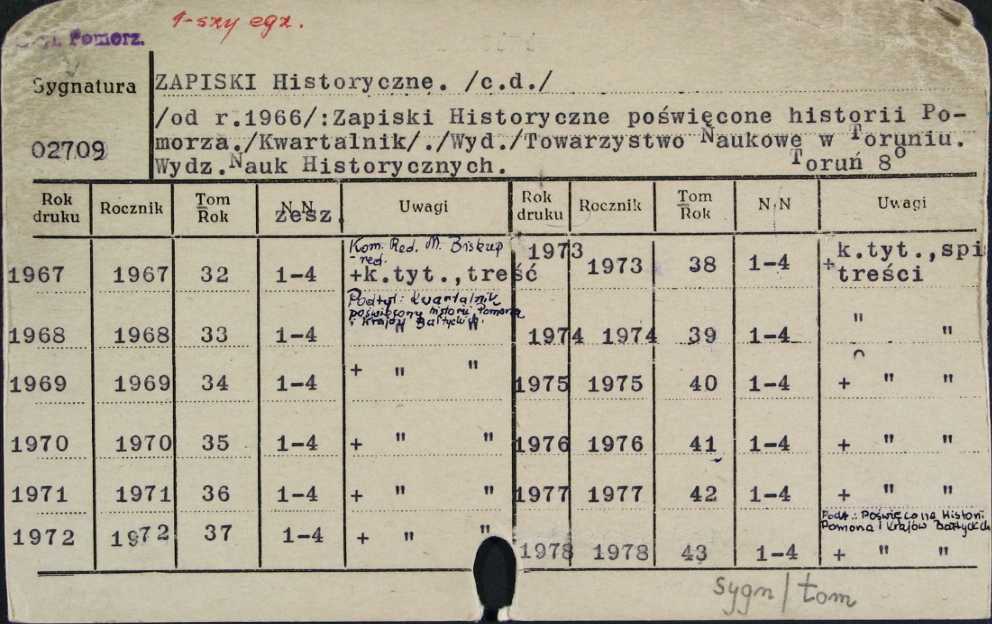 1-szy egz.
Pomorz.
Sygnatura
02709
ZAPISKI Historyczne. /c.d./
/od r.1966/:Zapiski Historyczne poświęcone historii Po-
morza./Kwartalnik/./Wyd./Towarzystwo Naukowe w Toruniu.
Wydz.Nauk Historycznych. Toruń 8°
Rok druku Rocznik Tom Rok N.N zesz. Uwagi Rok druku Rocznik Tom Rok N.N Uwagi
Kom. Red. M. Biskup
- red.
1967 1967 32 1-4 +k.tyt.,treść
1973 1973 38 1-4 +k.tyt.,spi
treści
Podtyt.: Kwartalnik
poświęcony historii Pomorza
i Krajów Bałtyckich.
1968 1968 33 1-4 " "
1974 1974 39 1-4 " "
1969 1969 34 1-4 + " "
1975 1975 40 1-4 + " "
1970 1970 35 1-4 + " "
1976 1976 41 1-4 + " "
1971 1971 36 1-4 + " "
1977 1977 42 1-4 + " "
1972 1972 37 1-4 + " "
Podt.: Poświęcone Historii
Pomorza i Krajów Bałtyckich
1978 1978 43 1-4 + " "
sygn/tom